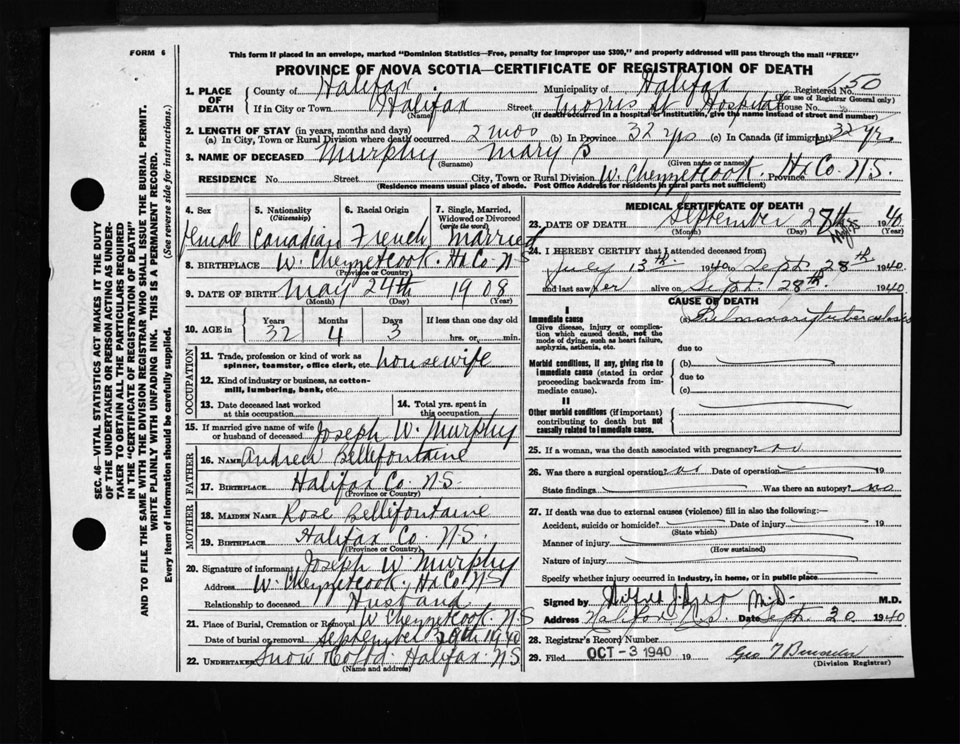 FORM 6
This form if placed in an envelope, marked "Dominion Statistics—Free, penalty for improper use $300," and properly addressed will pass through the mail "FREE"
PROVINCE OF NOVA SCOTIA—CERTIFICATE OF REGISTRATION OF DEATH
SEC. 46—VITAL STATISTICS ACT MAKES IT THE DUTY
OF THE UNDERTAKER OR PERSON ACTING AS UNDER-
TAKER TO OBTAIN ALL THE PARTICULARS REQUIRED
IN THE "CERTIFICATE OF REGISTRATION OF DEATH"
AND TO FILE THE SAME WITH THE DIVISION REGISTRAR WHO SHALL ISSUE THE BURIAL PERMIT.
WRITE PLAINLY WITH UNFADING INK. THIS IS A PERMANENT RECORD.
Every item of information should be carefully supplied. (See reverse side for instructions.)
1. PLACE OF DEATH County of Halifax Municipality of Halifax Registered No. 150
(For use of Registrar General only)
If in City or Town Halifax Street Morris St Hospital House No.
(Name) (If death occurred in a hospital or institution, give the name instead of street and number)
2. LENGTH OF STAY (in years, months and days)
(a) In City, Town or Rural Division where death occurred 2 mos (b) In Province 32 yrs (c) In Canada (if immigrant) 32 yrs
3. NAME OF DECEASED Murphy Mary B
(Surname) (Given name or names)
RESIDENCE No. Street City, Town or Rural Division W. Chezzetcook Province Hx Co. N.S.
(Residence means usual place of abode. Post Office Address for residents in rural parts not sufficient)
4. Sex 5. Nationality (Citizenship) 6. Racial Origin 7. Single, Married, Widowed or Divorced (write the word)
female Canadian French married
8. BIRTHPLACE W. Chezzetcook. Hx Co. N S
(Province or Country)
9. DATE OF BIRTH May 24th 1908
(Month) (Day) (Year)
10. AGE in Years Months Days If less than one day old
32 4 3 hrs. or min.
OCCUPATION
11. Trade, profession or kind of work as spinner, teamster, office clerk, etc. housewife
12. Kind of industry or business, as cotton-mill, lumbering, bank, etc.
13. Date deceased last worked at this occupation
14. Total yrs. spent in this occupation
15. If married give name of wife or husband of deceased Joseph W. Murphy
FATHER
16. NAME Andrew Bellefontaine
17. BIRTHPLACE Halifax Co. N S.
(Province or Country)
MOTHER
18. MAIDEN NAME Rose Bellefontaine
19. BIRTHPLACE Halifax Co. N S.
(Province or Country)
20. Signature of informant Joseph W. Murphy
Address W. Chezzetcook. Hx Co. N S
Relationship to deceased Husband
21. Place of Burial, Cremation or Removal W Chezzetcook. N S
Date of burial or removal September 1940
22. UNDERTAKER Snow & Co Ltd. Halifax. N S
(Name and address)
MEDICAL CERTIFICATE OF DEATH
23. DATE OF DEATH September 28th 1940
(Month) (Day) (Year)
24. I HEREBY CERTIFY that I attended deceased from
July 13th 1940 to Sept. 28th 1940
and last saw her alive on Sept. 28th 1940.
CAUSE OF DEATH
I
Immediate cause (a) Pulmonary tuberculosis
Give disease, injury or complication which caused death, not the mode of dying, such as heart failure, asphyxia, asthenia, etc. due to
Morbid conditions, if any, giving rise to immediate cause (stated in order proceeding backwards from immediate cause). (b)
due to
(c)
II
Other morbid conditions (if important) contributing to death but not causally related to immediate cause.
25. If a woman, was the death associated with pregnancy? no
26. Was there a surgical operation? no Date of operation 19
State findings Was there an autopsy? no
27. If death was due to external causes (violence) fill in also the following:—
Accident, suicide or homicide? Date of injury 19
(State which)
Manner of injury
(How sustained)
Nature of injury
Specify whether injury occurred in industry, in home, or in public place
Signed by M.D. M.D.
Address Halifax N.S. Date Sept. 30 1940
28. Registrar's Record Number
29. Filed OCT - 3 1940 19 Geo T
(Division Registrar)